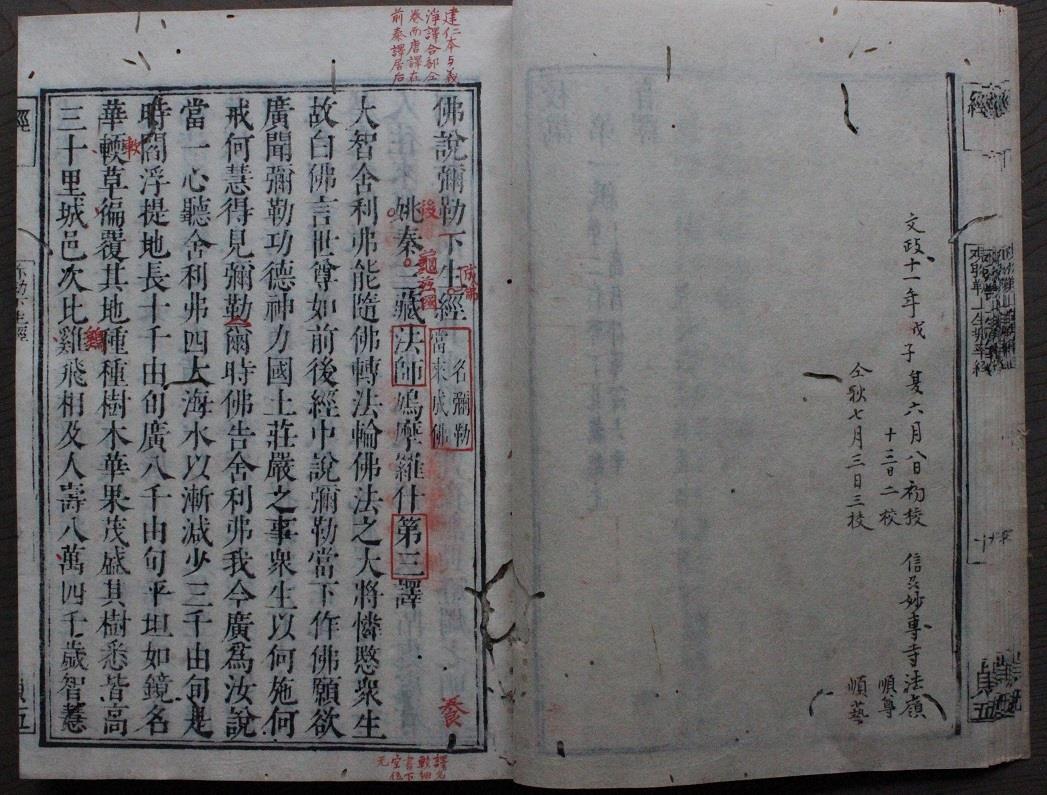 文政十一年戊子夏六月八日初校 信呉妙専寺法嶺
十三日二校 順尊
仝秋七月三日三校 順藝
建仁本与義
淨譯合部全
卷而唐譯在
前秦譯居后
佛說彌勒下生經 名彌勒
當來成佛
成佛
姚秦三藏法師鳩摩羅什第三譯
後 龜茲國
大智舍利弗能隨佛轉法輪佛法之大將憐愍衆生
故白佛言世尊如前後經中說彌勒當下作佛願欲
廣聞彌勒功德神力國土莊嚴之事衆生以何施何
戒何慧得見彌勒爾時佛告舍利弗我今廣爲汝說
當一心聽舍利弗四大海水以漸減少三千由旬是
時閻浮提地長十千由旬廣八千由旬平坦如鏡名
華輭草徧覆其地種種樹木華果茂盛其樹悉皆高
軟
三十里城邑次比雞飛相及人壽八萬四千歲智慧
鷄
養
貞五